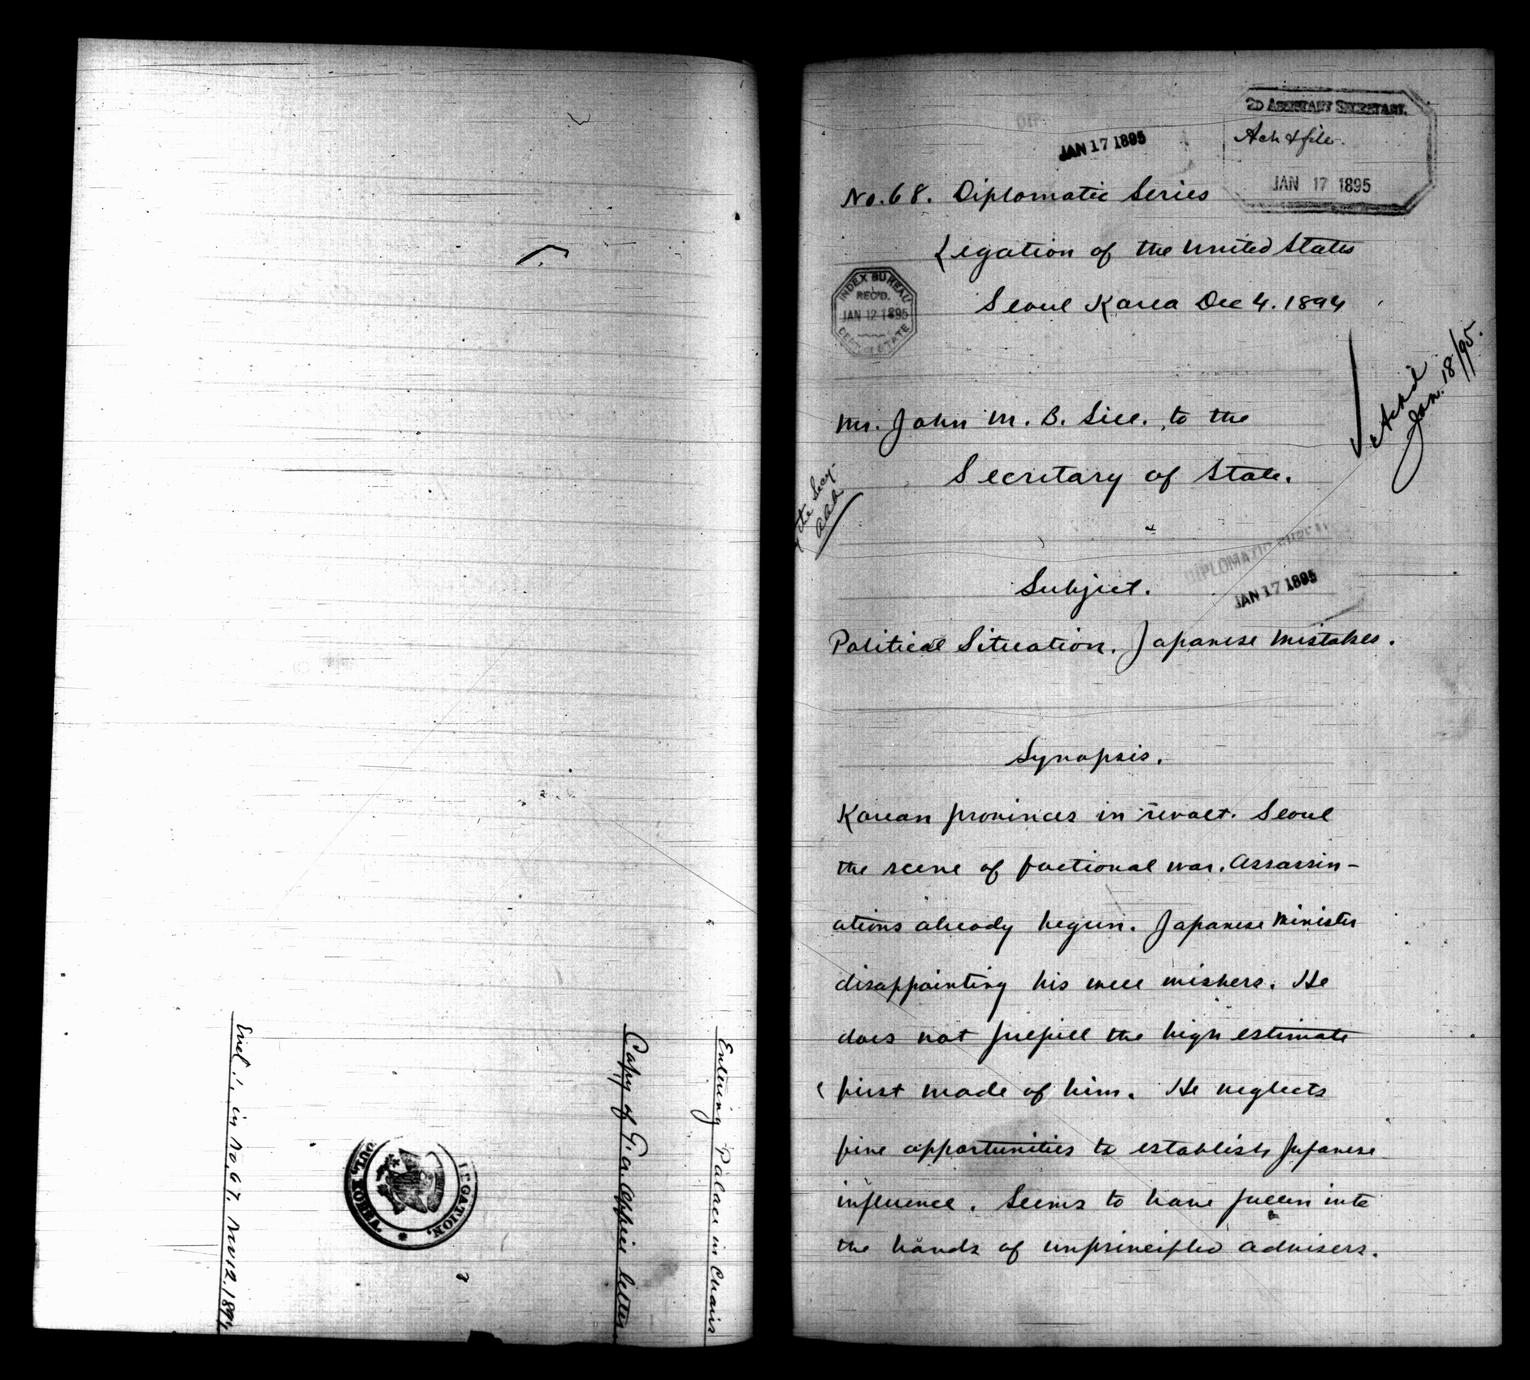 Entering Palace in Chairs
Copy of F. O. Office letter
Encl. 1. in No 67. Nov 12. 1894
LEGATION.
SEOUL KOREA
2D ASSISTANT SECRETARY.
Ack & file.
JAN 17 1895
JAN 17 1895
No. 68. Diplomatic Series
Legation of the United States
Seoul Korea Dec 4. 1894
INDEX BUREAU
REC'D.
JAN 12 1895
DEPT. OF STATE
Ackd
Jan. 18/95.
Mr. John M. B. Sill. to the
Secretary of State.
the Secy.
DIPLOMATIC BUREAU
JAN 17 1895
Subject.
Political Situation. Japanese Mistakes.
Synopsis.
Korean provinces in revolt. Seoul
the scene of factional war. Assassin-
ations already begun. Japanese Minister
disappointing his well wishers. He
does not fulfill the high estimate
first made of him. He neglects
fine opportunities to establish Japanese
influence. Seems to have fallen into
the hands of unprincipled advisers.